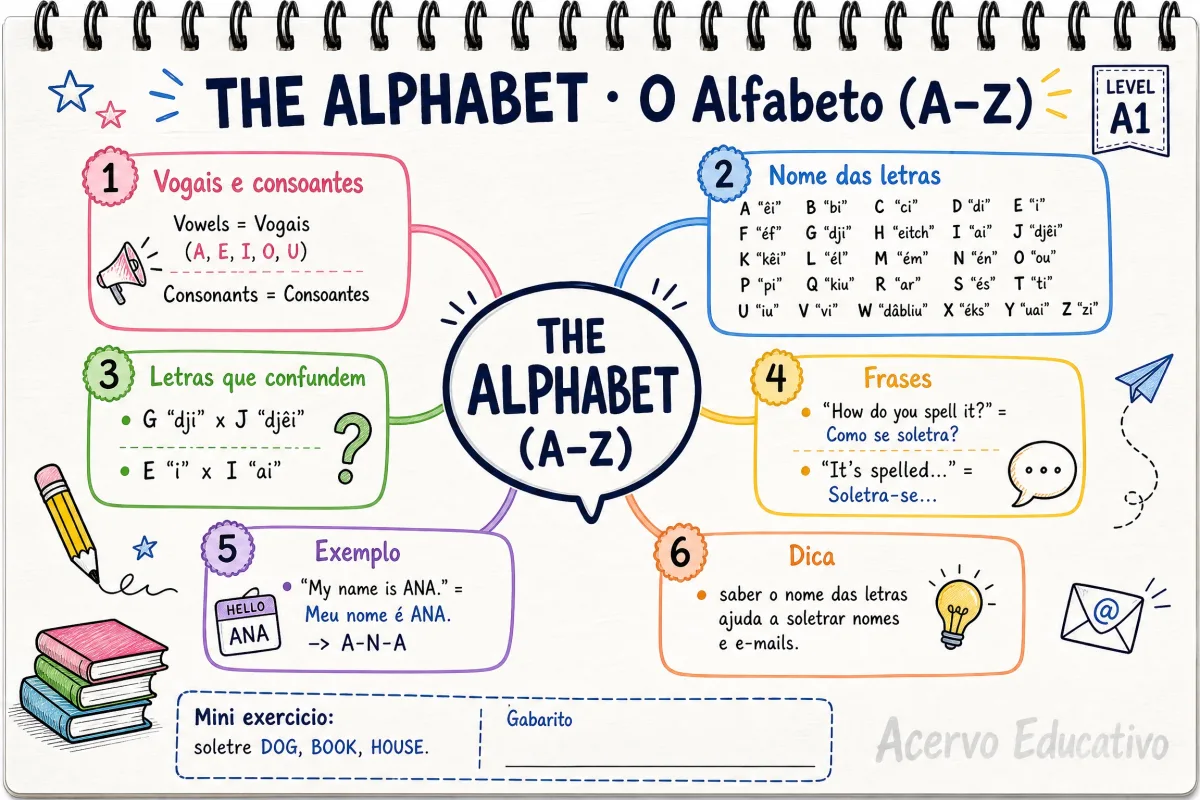 THE ALPHABET · O Alfabeto (A–Z)
LEVEL
A1
1
Vogais e consoantes
Vowels = Vogais
(A, E, I, O, U)
Consonants = Consoantes
2
Nome das letras
A “êi” B “bi” C “ci” D “di” E “i”
F “éf” G “dji” H “eitch” I “ai” J “djêi”
K “kêi” L “él” M “ém” N “én” O “ou”
P “pi” Q “kiu” R “ar” S “és” T “ti”
U “iu” V “vi” W “dâbliu” X “éks” Y “uai” Z “zi”
THE
ALPHABET
(A–Z)
3
Letras que confundem
• G “dji” x J “djêi”
• E “i” x I “ai”
?
4
Frases
• “How do you spell it?” =
Como se soletra?
• “It’s spelled...” =
Soletra-se...
5
Exemplo
HELLO
ANA
• “My name is ANA.” =
Meu nome é ANA.
–> A-N-A
6
Dica
• saber o nome das letras
ajuda a soletrar nomes
e e-mails.
@
Mini exercicio:
soletre DOG, BOOK, HOUSE.
Gabarito
Acervo Educativo